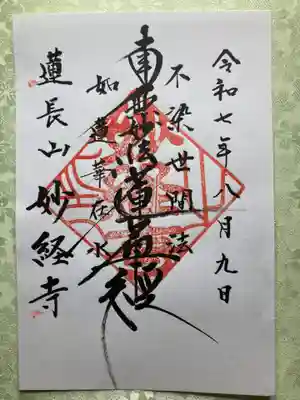 令和七年八月九日
不染世間法
南無妙法蓮華経
如蓮華在水
蓮長山 妙経寺